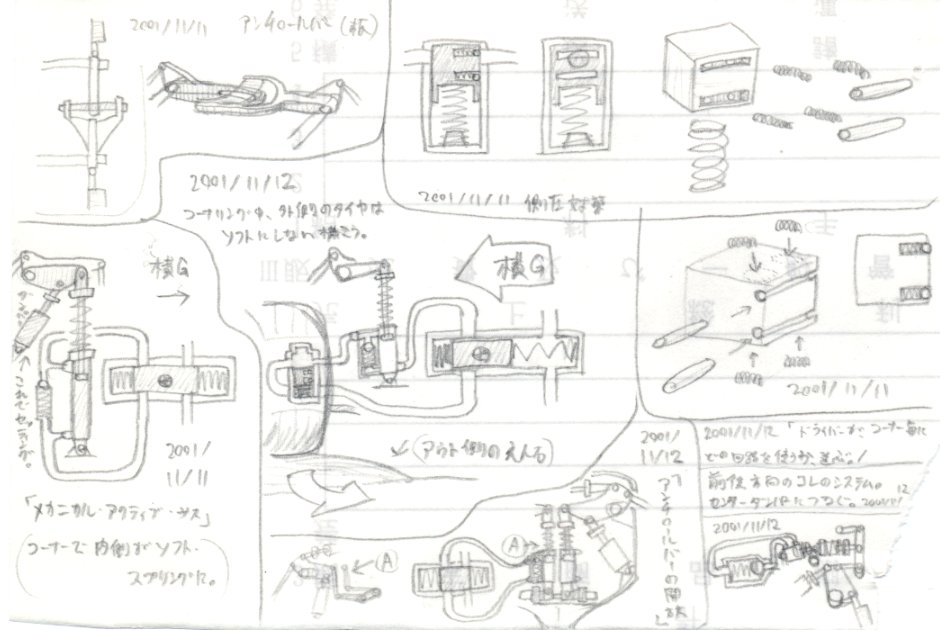 2001/11/11 アンチロールバー(板)
2001/11/11 側圧対策
2001/11/12
コーナリング中、外側のタイヤは
ソフトにしない機こう。
横G
横G
ダンパー
これでセッティング。
2001/
11/11
2001/11/11
「メカニカル・アクティブ・サス」
(コーナーで内側がソフト・
スプリングに。)
(アウト側の
2001/
11/12
「アンチロールバーの
A
A
2001/11/12 「ドライバーがコーナー毎に
どの回路を使うか、選ぶ。」
前後方向のコレのシステム。
センターダンパーにつなぐ。
2001/11/12